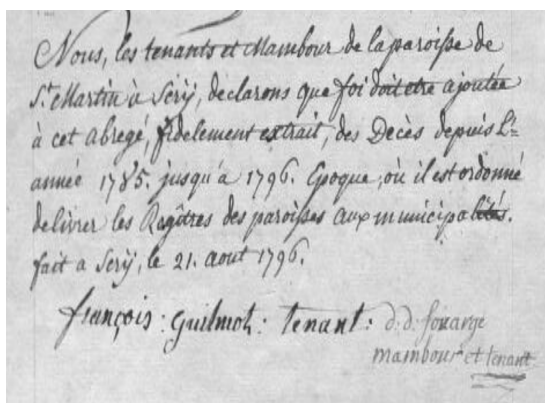 Nous, les tenants et Mambour de la paroisse de
St. Martin à Scrÿ, déclarons que foi doit etre ajoutée
à cet abregé, fidelement extrait, des Decès depuis L'-
année 1785. jusqu'à 1796. Epoque, où il est ordonné
delivrer les Regîtres des paroisses aux municipalités.
fait a Scrÿ, le 21. aout 1796.
françois : Guilmot : tenant : d. d. fouarge
mambour et tenant